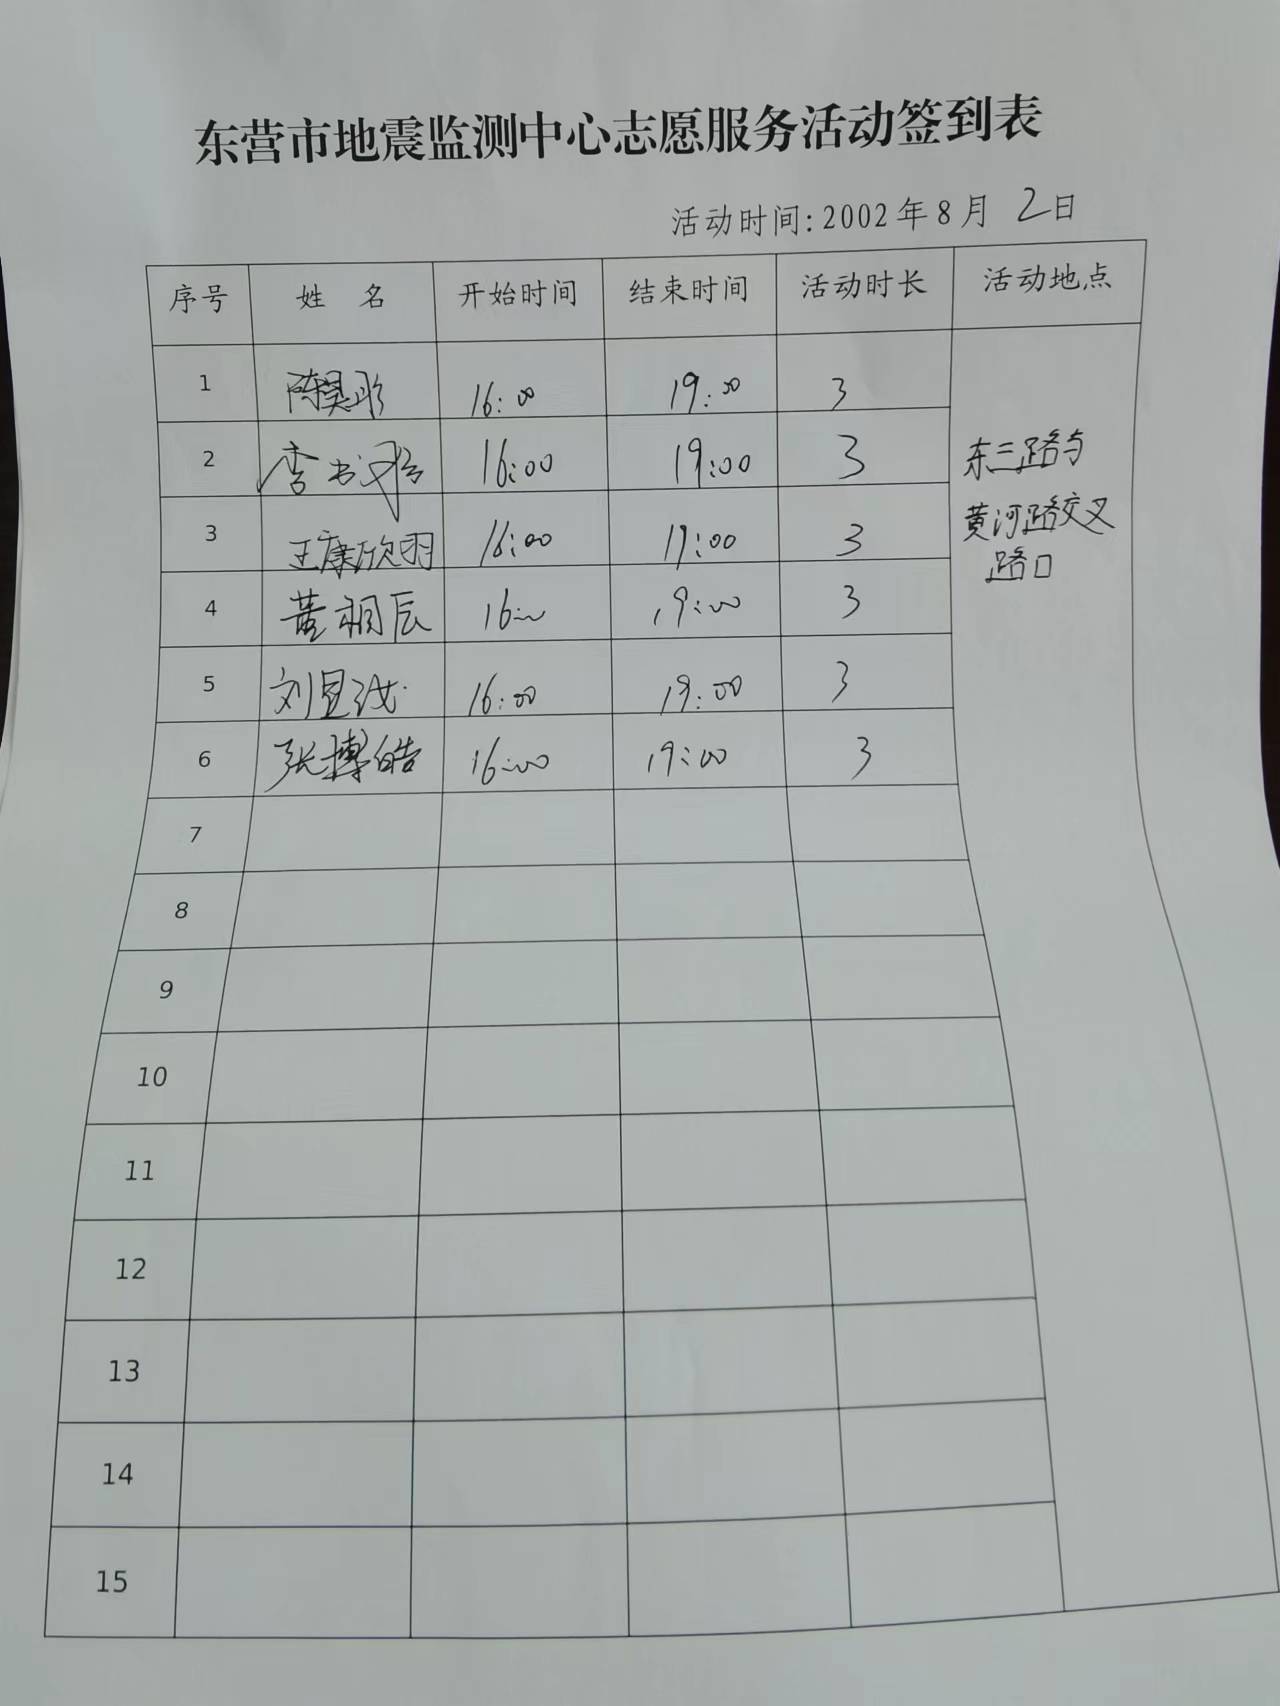 东营市地震监测中心志愿服务活动签到表
活动时间:2002年8月2日
序号 姓名 开始时间 结束时间 活动时长 活动地点
1 陈昊彤 16:00 19:00 3
2 李书 16:00 19:00 3
3 王康欣羽 16:00 19:00 3
4 黄桐辰 16:00 19:00 3
5 刘显汝 16:00 19:00 3
6 张博皓 16:00 19:00 3
东三路与
黄河路交叉
路口
7
8
9
10
11
12
13
14
15